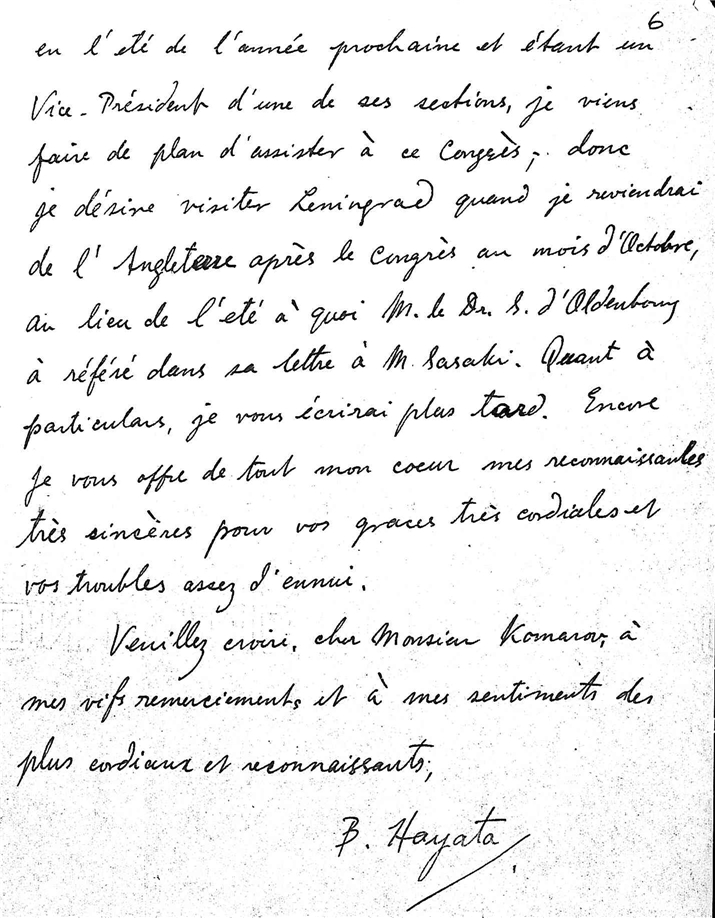 6
en l'eté de l'année prochaine et étant un
Vice-Président d'une de ses sections, je viens
faire de plan d'assister à ce Congrès; donc
je désire visiter Leningrad quand je reviendrai
de l'Angletare après le Congrès au mois d'Octobre,
au lieu de l'eté à quoi M. le Dr. S. d'Oldenbourg
à référé dans sa lettre à M. Sasaki. Quant à
particulars, je vous écrirai plus tard. Encore
je vous offre de tout mon coeur mes reconnaissances
très sincères pour vos graces très cordiales et
vos troubles assez d'ennui.
Veuillez croire, cher Monsieur Komarov, à
mes vifs remerciements et à mes sentiments des
plus cordiaux et reconnaissants,
B. Hayata